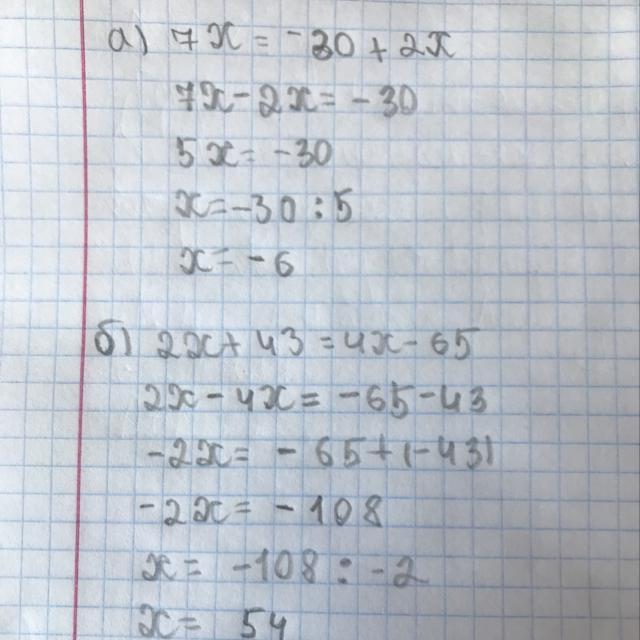 а) 7x = -30 + 2x
7x - 2x = - 30
5x = -30
x = -30 : 5
x = - 6
б) 2x + 43 = 4x - 65
2x - 4x = -65 - 43
-2x = - 65 + (-43)
-2x = - 108
x = -108 : -2
x = 54